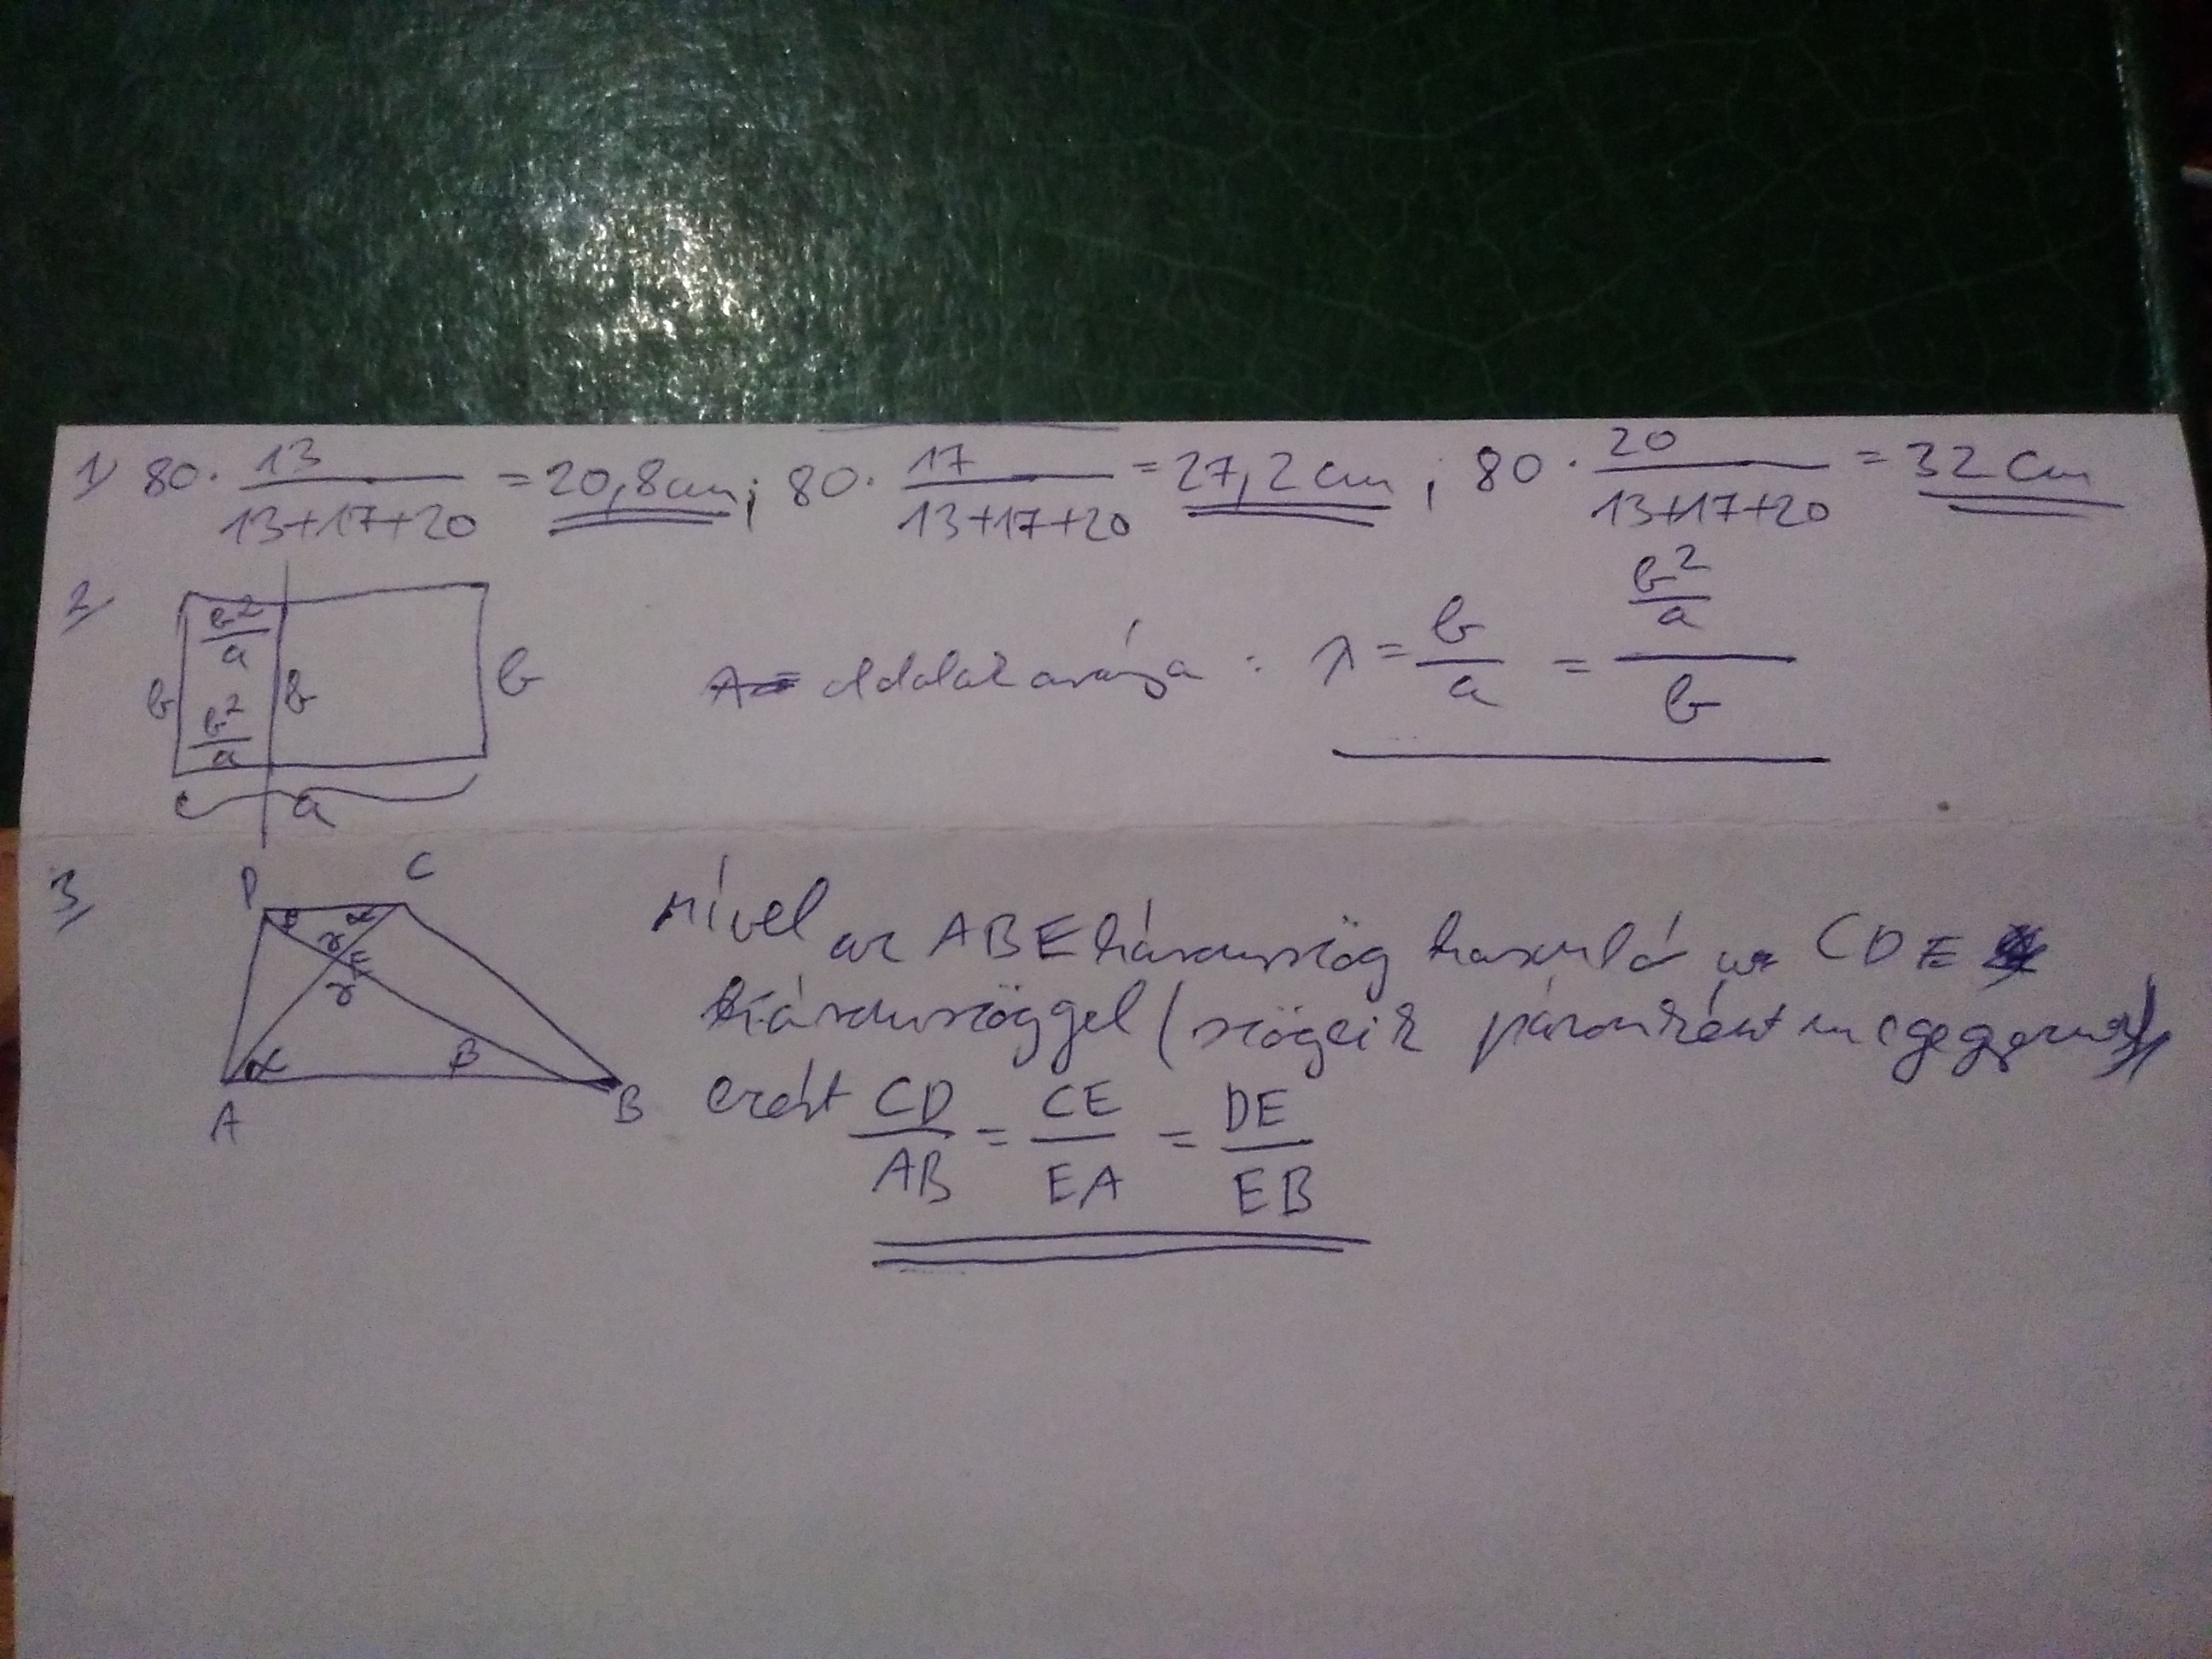 1) 80 · 13/(13+17+20) = 20,8cm; 80 · 17/(13+17+20) = 27,2 cm; 80 · 20/(13+17+20) = 32 cm
2)
b²/a
b b b
b²/a
a
oldalak aránya: λ = b/a = (b²/a)/b
3)
D C
β α
γ
E
γ
α β
A B
Mivel az ABE háromszög hasonló a CDE
háromszöggel (szögeik páronként megegyeznek)
ezért CD/AB = CE/EA = DE/EB